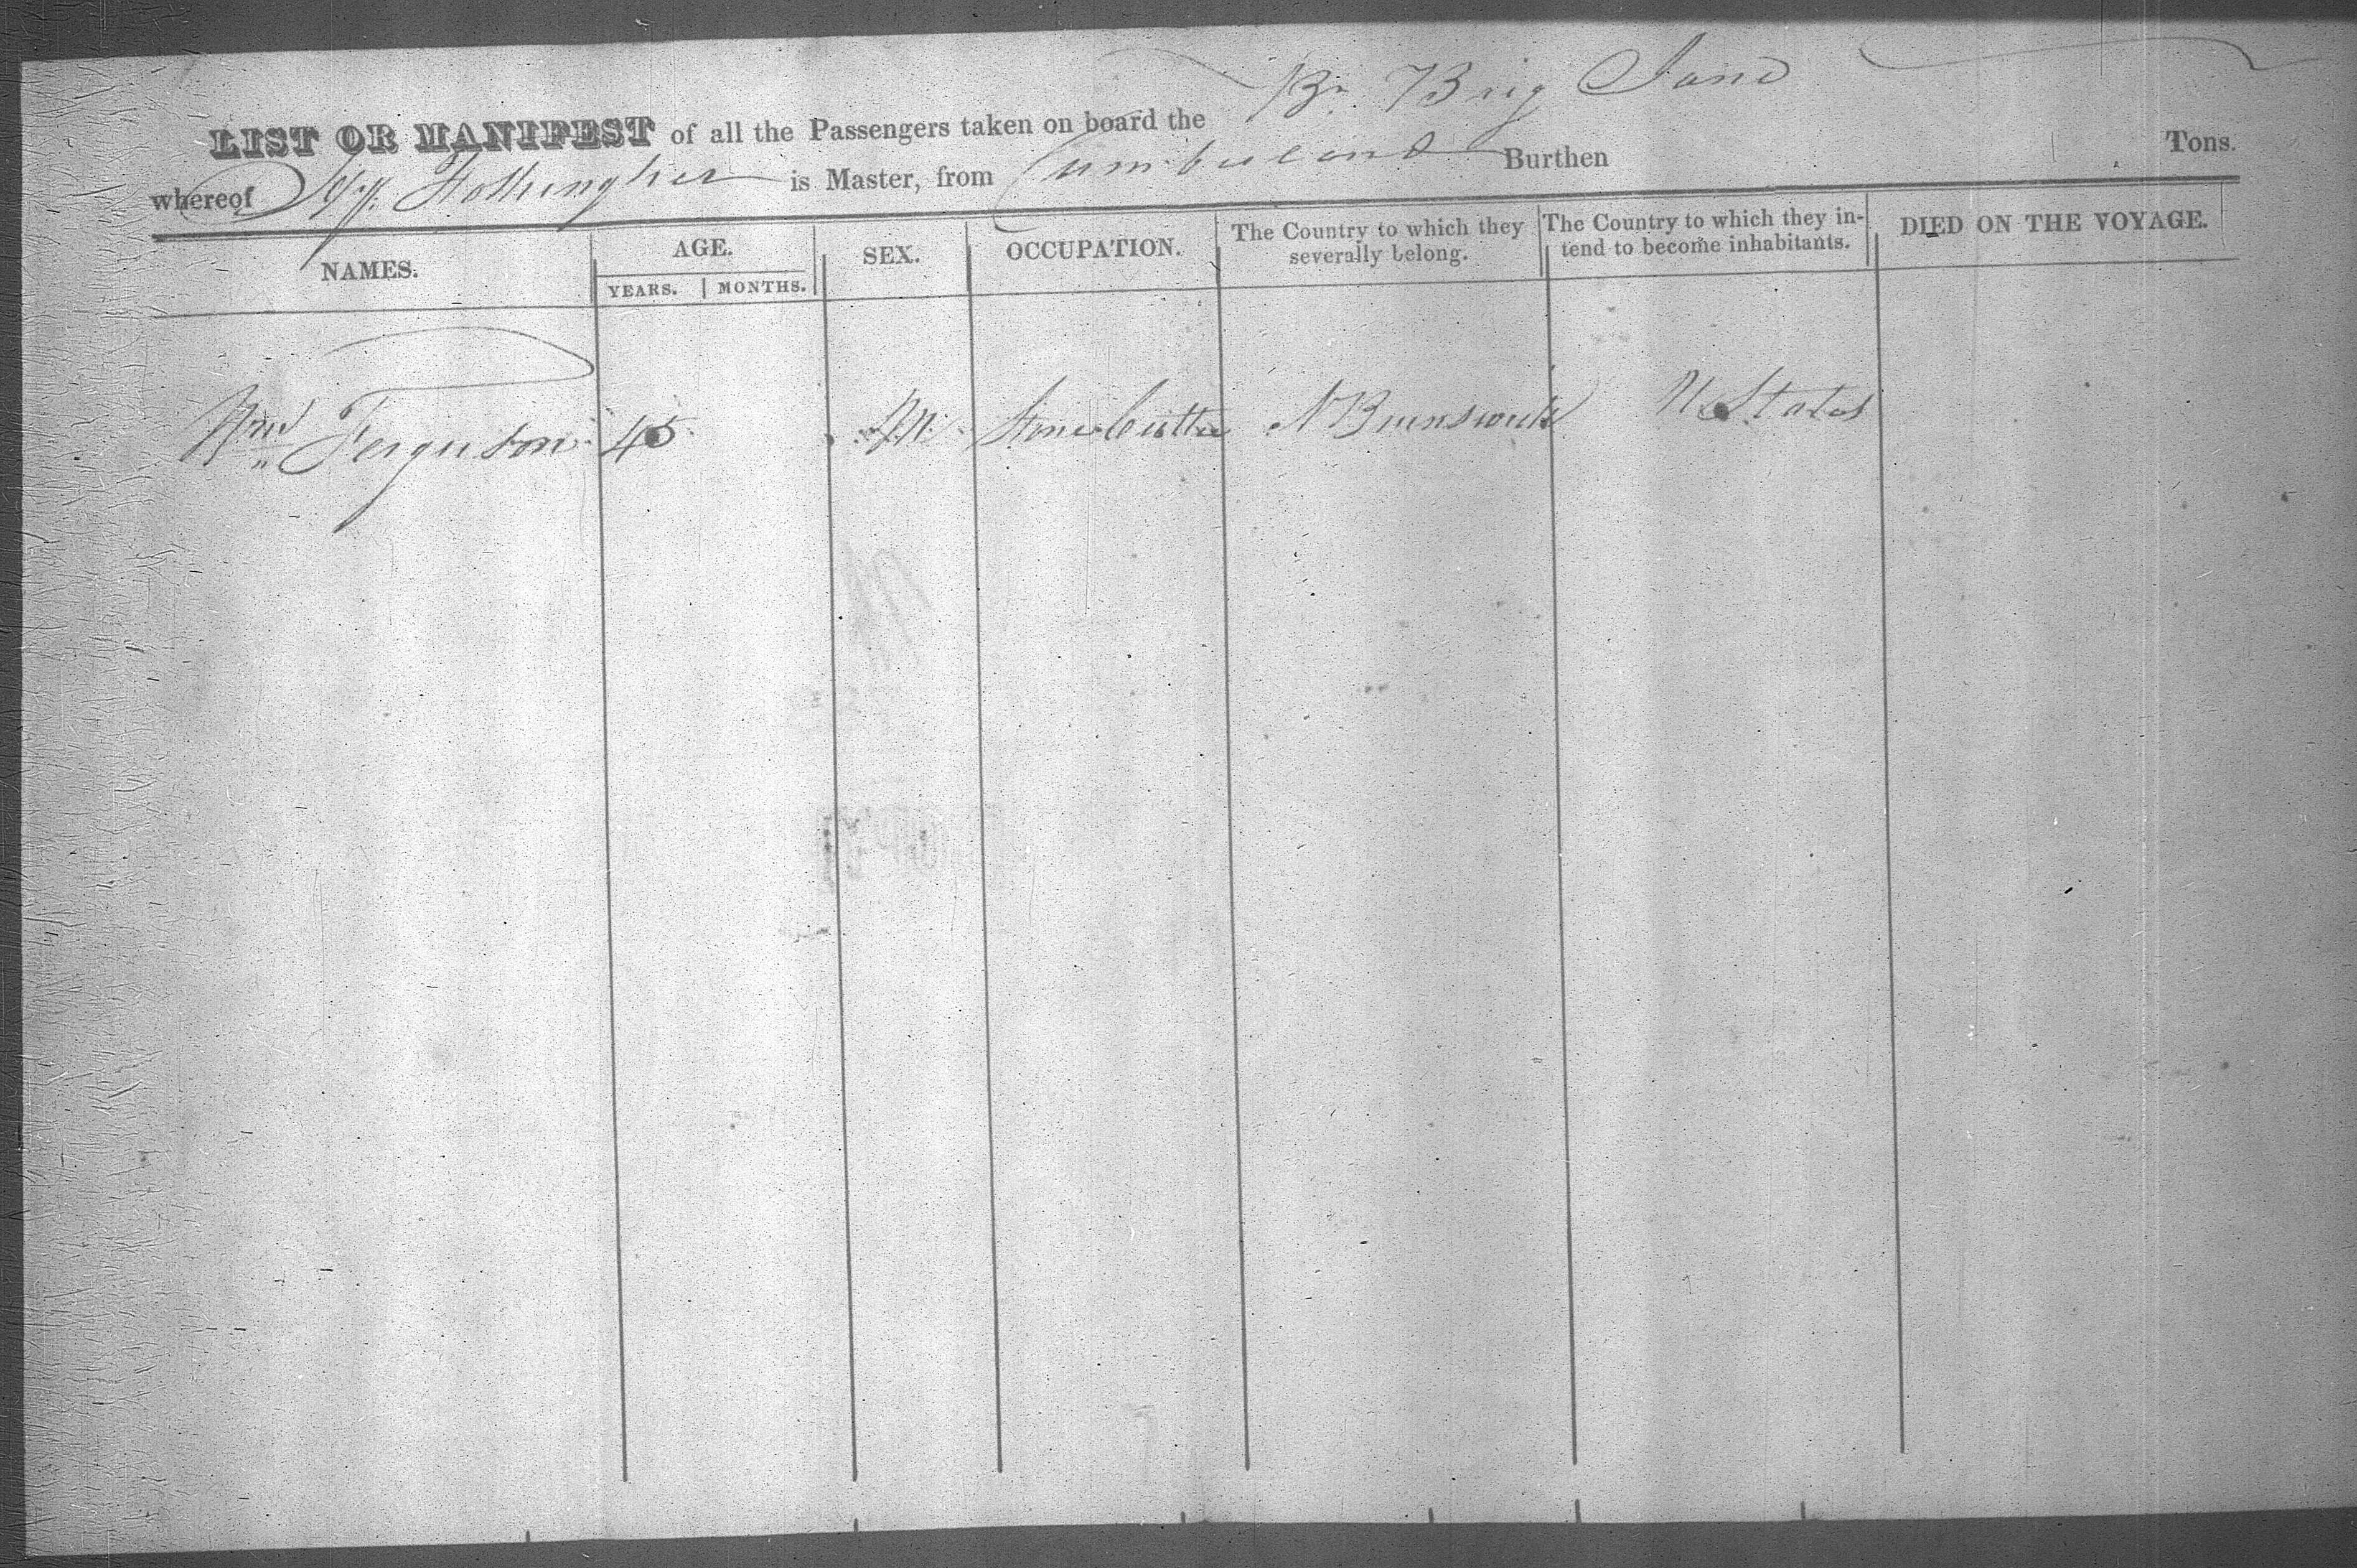 LIST OR MANIFEST of all the Passengers taken on board the Br. Brig Jane
whereof is Master, from Cumberland Burthen Tons.
NAMES. AGE. SEX. OCCUPATION. The Country to which they severally belong. The Country to which they in-tend to become inhabitants. DIED ON THE VOYAGE.
YEARS. MONTHS.
Ferguson 45 M Stone Cutter N Brunswick U States